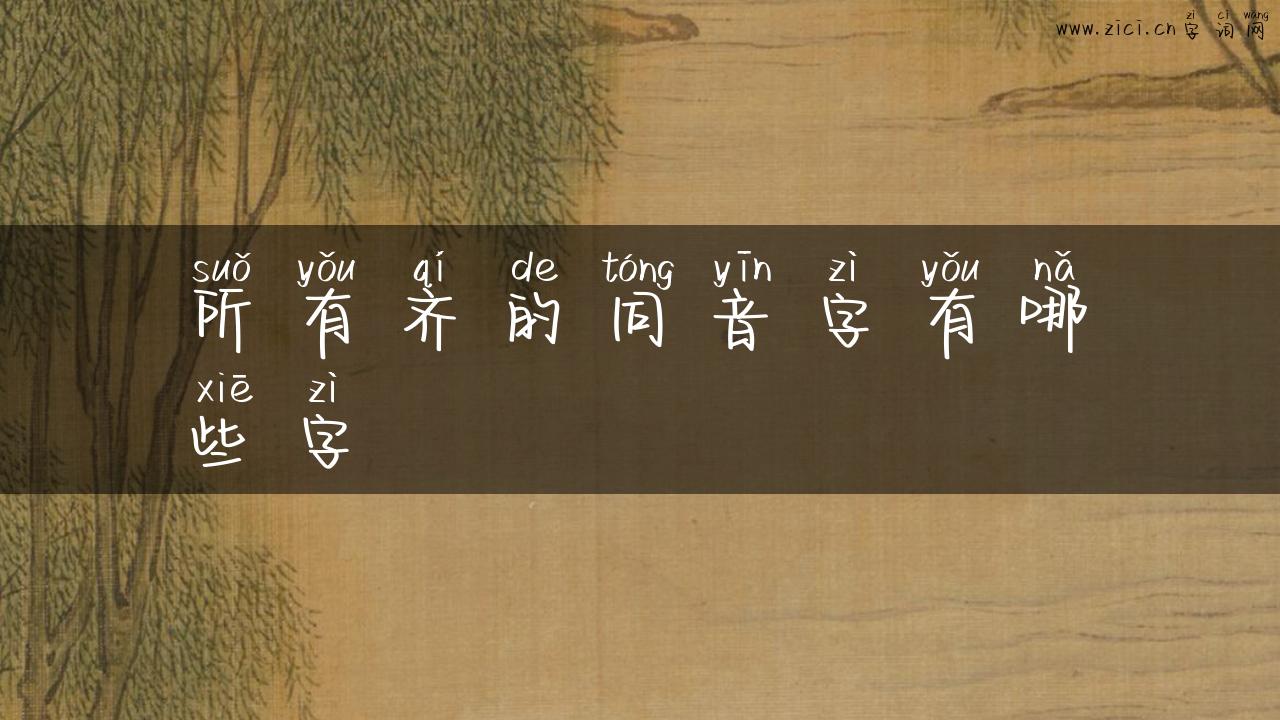 zì cí wǎng
www.zici.cn字词网
suǒ yǒu qí de tóng yīn zì yǒu nǎ
所有齐的同音字有哪
xiē zì
些字